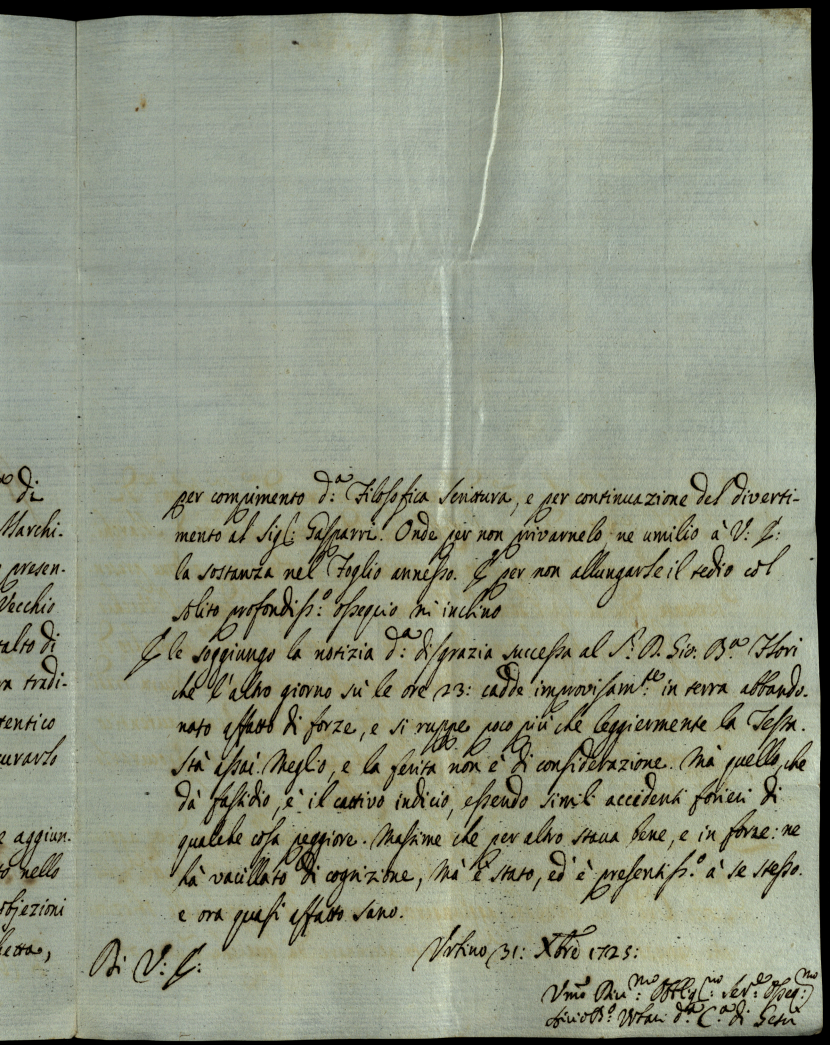 di
Marchi-
presen-
Vecchio
salto di
ra tradi-
tentico
curarlo
e aggiun-
to nello
obiezioni
per compimento d:ᵃ Filosofica Scrittura, e per continuazione del diverti-
mento al Sigʳ: Gasparri. Onde per non privarnelo ne umilio à V: E:
la sostanza nel Foglio annesso. E per non allungarle il tedio col
solito profondiss:º ossequio mi inchino
E le soggiungo la notizia d:ᵃ disgrazia successa al S:ʳ D. Gio. B.ᵃ Flori
che l'altro giorno sù le ore 23: cadde improvisam:ᵗᵉ in terra abbando-
nato affatto di forze, e si ruppe poco più che leggiermente la Testa.
Stà assai meglio, e la ferita non è di considerazione. Mà quello, che
dà fastidio, è il cattivo indicio, essendo simili accidenti forieri di
qualche cosa peggiore. Massime che per altro stava bene, e in forze: ne
hà vacillato di cognizione, mà è stato, ed è presentiss:º à se stesso.
e ora quasi affatto sano.
Di V: E:
Urbino 31: Xbre 1725:
Umo Divᵐᵒ Obblig:ᵐᵒ Ser:ᵉ Osseq:ᵐᵒ
d:ᵃ C:ᵃ di Gesù